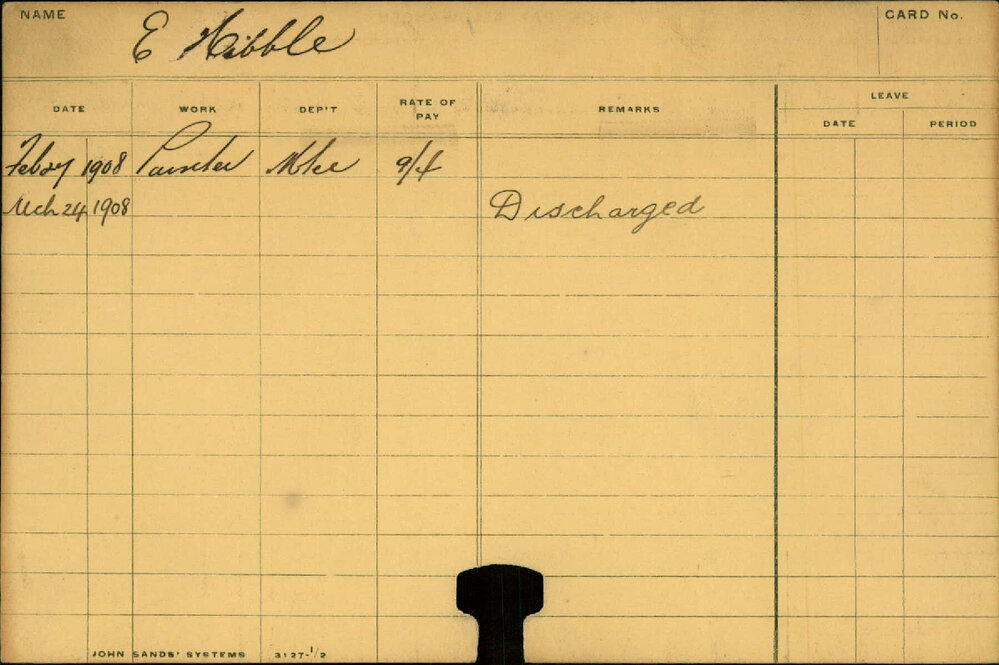 NAME E Hibble CARD No.
DATE WORK DEP'T RATE OF PAY REMARKS LEAVE
DATE PERIOD
Feb 27 1908 Painter 9/4
Mch 24 1908 Discharged
JOHN SANDS' SYSTEMS 3127-1/2